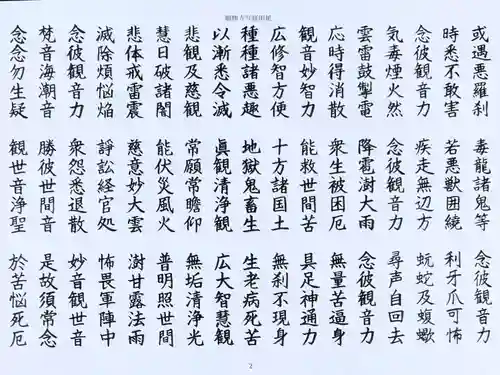 或遇悪羅刹 毒龍諸鬼等 念彼観音力
時悉不敢害 若悪獣囲繞 利牙爪可怖
念彼観音力 疾走無辺方 蚖蛇及蝮蠍
気毒煙火然 念彼観音力 尋声自回去
雲雷鼓掣電 降雹澍大雨 念彼観音力
応時得消散 衆生被困厄 無量苦逼身
観音妙智力 能救世間苦 具足神通力
広修智方便 十方諸国土 無刹不現身
種種諸悪趣 地獄鬼畜生 生老病死苦
以漸悉令滅 眞観清浄観 広大智慧観
悲観及慈観 常願常瞻仰 無垢清浄光
慧日破諸闇 能伏災風火 普明照世間
悲体戒雷震 慈意妙大雲 澍甘露法雨
滅除煩悩焔 諍訟経官処 怖畏軍陣中
念彼観音力 衆怨悉退散 妙音観世音
梵音海潮音 勝彼世間音 是故須常念
念念勿生疑 観世音浄聖 於苦悩死厄
2